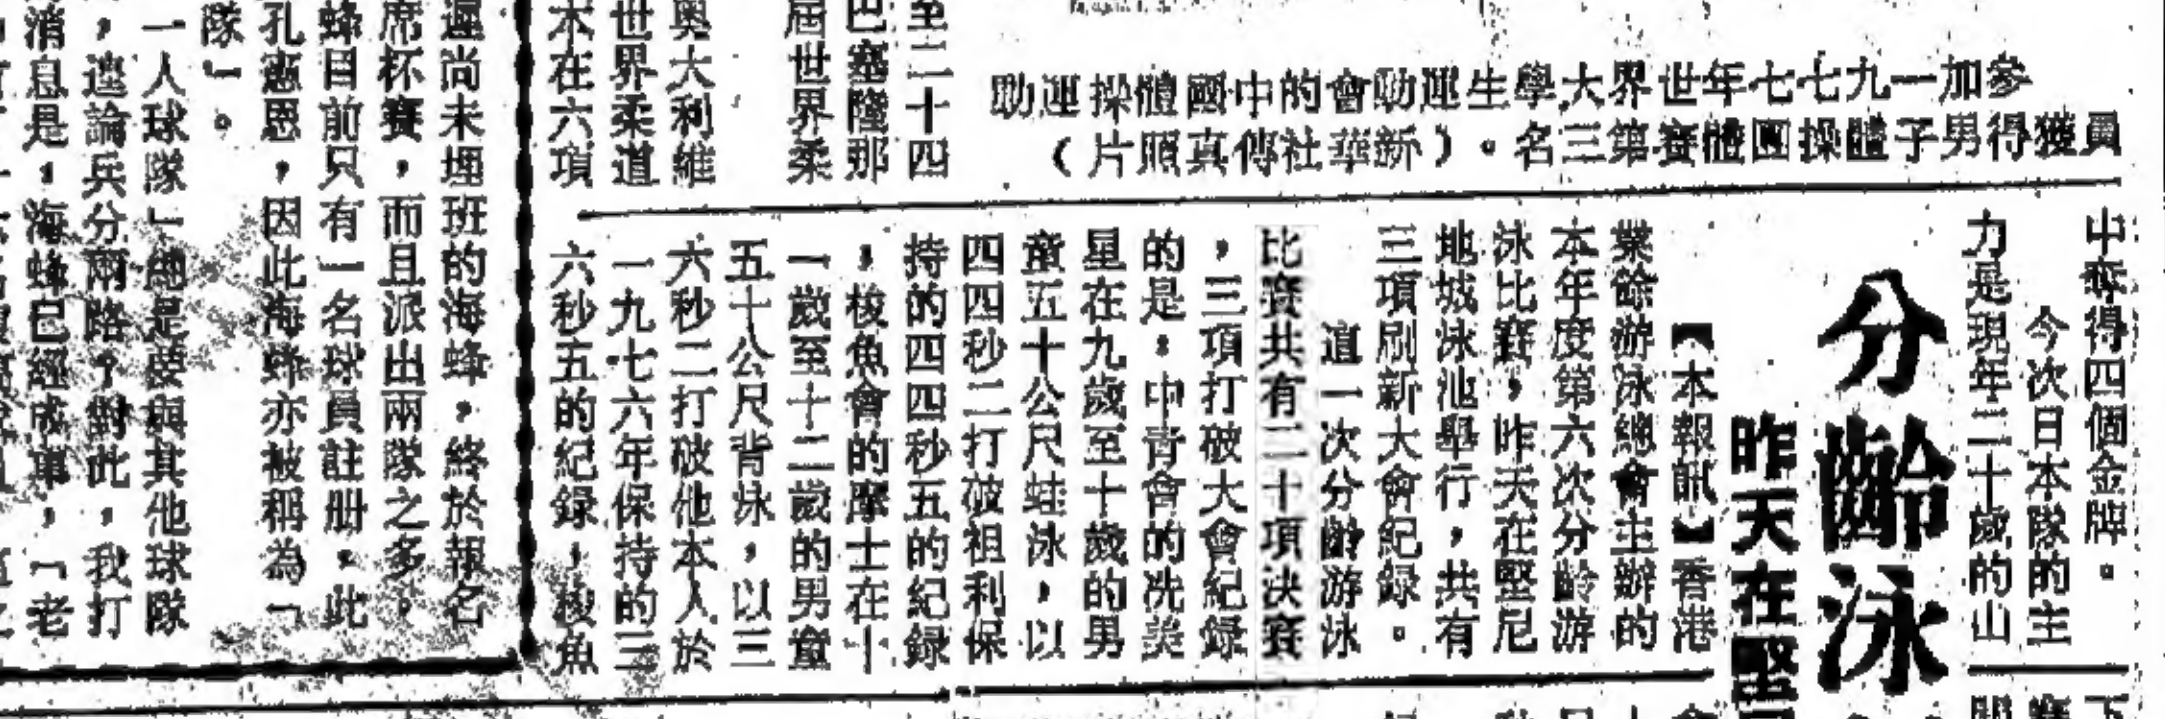 參加一九七七年世界大學生運動會的中國體操運動
員獲得男子體操團體賽第三名。（新華社傳真照片）
中奪得四個金牌。
今次日本隊的主
力是現年二十歲的山
分齡泳
昨天在堅尼
【本報訊】香港
業餘游泳總會主辦的
本年度第六次分齡游
泳比賽，昨天在堅尼
地城泳池舉行，共有
三項刷新大會紀錄。
這一次分齡游泳
比賽共有二十項決賽
，三項打破大會紀錄
的是：中青會的冼美
星在九歲至十歲的男
童五十公尺蛙泳，以
四四秒二打破祖利保
持的四四秒五的紀錄
，梭魚會的摩士在十
一歲至十二歲的男童
五十公尺背泳，以三
六秒二打破他本人於
一九七六年保持的三
六秒五的紀錄，梭魚
至二十四
巴塞隆那
屆世界柔
奧大利維
世界柔道
本在六項
遲尚未埋班的海蜂，終於報名
席杯賽，而且派出兩隊之多。
蜂目前只有一名球員註册。此
孔憲恩，因此海蜂亦被稱為「
隊」。
一人球隊」總是要與其他球隊
，遑論兵分兩路？對此，我打
消息是，海蜂已經成軍，「老